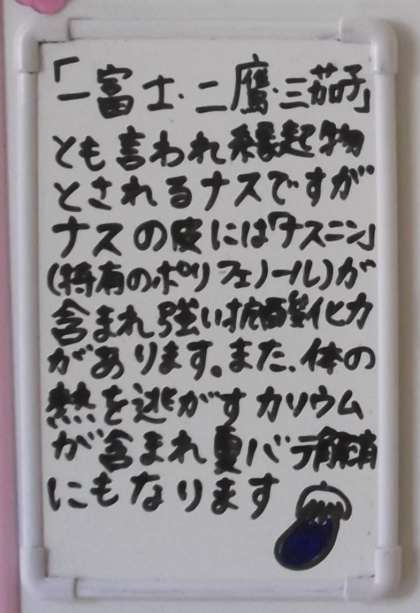 「一富士・二鷹・三茄子」
とも言われ縁起物
とされるナスですが
ナスの皮には「ナスニン」
(特有のポリフェノール)が
含まれ強い抗酸化力
があります。また、体の
熱を逃がすカリウム
が含まれ夏バテ解消
にもなります